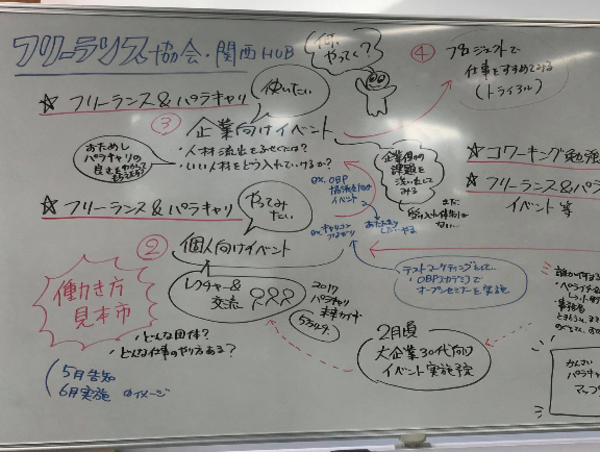 フリーランス協会・関西HUB
何、やってく？
④ プロジェクトで
仕事をすすめてみる
(トライアル)
☆ フリーランス&パラキャリ
使いたい
③ 企業向けイベント
・人材流出をふせぐには？
・いい人材をどう入れていけるか？
おためし
パラキャリの
良さを
企業側の
課題を
洗い出して
みる
まだ
受け入れ体制が
ない…
ex. OBP
イベント
☆ フリーランス&パラキャリ
やって
みたい
② 個人向けイベント
レクチャー&
交流
2017
パラキャリ
☆ コワーキング勉強
☆ フリーランス&パラ
イベント等
働き方
見本市
・どんな団体？
・どんな仕事のやり方ある？
5月告知
6月実施 のイメージ
テストマーケティングとして、
OBPアカデミアで
オープンセミナーを実施
2月頃
大企業30代向け
イベント実施予定
誰かがする
事務局
かんさい
パラキャリ
マップ